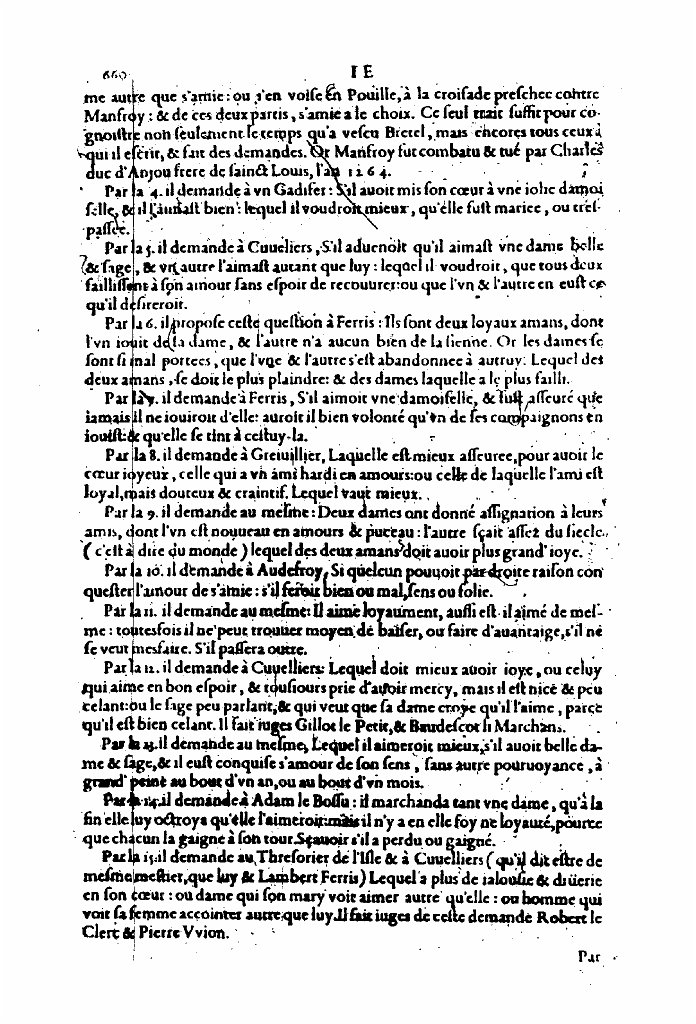 660 IE
me autre que s'amie: ou s'en voise en Pouille, à la croisade preschee contre
Manfroy: & de ces deux partis, s'amie a le choix. Ce seul trait suffit pour co-
gnoistre non seulement le temps qu'a vescu Bretel, mais encores tous ceux à
qui il escrit, & fait des demandes. Or Manfroy fut combatu & tué par Charles
duc d'Anjou frere de sainct Louis, l'an 1264.
Par la 4. il demande à vn Gadifer: S'il auoit mis son cœur à vne iolie damoi
selle, & il l'aimast bien: lequel il voudroit mieux, qu'elle fust mariee, ou tres-
passée.
Par la 5. il demande à Cuueliers, S'il aduenoit qu'il aimast vne dame belle
& sage, & vn autre l'aimast autant que luy: lequel il voudroit, que tous deux
faillissent à son amour sans espoir de recouurer: ou que l'vn & l'autre en eust ce
qu'il desireroit.
Par la 6. il propose ceste question à Ferris: Ils sont deux loyaux amans, dont
l'vn iouit de la dame, & l'autre n'a aucun bien de la sienne. Or les dames se
sont si mal portees, que l'vne & l'autre s'est abandonnee à autruy. Lequel des
deux amans, se doit le plus plaindre: & des dames laquelle a le plus failli.
Par la 7. il demande à Ferris, S'il aimoit vne damoiselle, & fust asseuré que
iamais il ne iouiroit d'elle: auroit il bien volonté qu'vn de ses compaignons en
iouist: & qu'elle se tint à cestuy-la.
Par la 8. il demande à Greiuillier, Laquelle est mieux asseuree, pour auoir le
cœur ioyeux, celle qui a vn ami hardi en amours: ou celle de laquelle l'ami est
loyal, mais douteux & craintif. Lequel vaut mieux.
Par la 9. il demande au mesme: Deux dames ont donné assignation à leurs
amis, dont l'vn est nouueau en amours & puceau: l'autre sçait assez du siecle,
( c'est à dire du monde ) lequel des deux amans doit auoir plus grand' ioye.
Par la 10. il demande à Audefroy, Si quelcun pouuoit par droite raison con
quester l'amour de s'amie: s'il feroit bien ou mal, sens ou folie.
Par la 11. il demande au mesme: Il aime loyaument, aussi est-il aimé de mes-
me: toutesfois il ne peut trouuer moyen de baiser, ou faire d'auantaige, s'il ne
se veut mesfaire. S'il passera outre.
Par la 12. il demande à Cuuelliers: Lequel doit mieux auoir ioye, ou celuy
qui aime en bon espoir, & tousiours prie d'auoir mercy, mais il est nice & peu
celant: ou le sage peu parlant, & qui veut que sa dame croye qu'il l'aime, parce
qu'il est bien celant. Il fait iuges Gillot le Petit, & Baudescot li Marchans.
Par la 13. il demande au mesme, Lequel il aimeroit mieux, s'il auoit belle da-
me & sage, & il eust conquise s'amour de son sens, sans autre pouruoyance, à
grand' peine au bout d'vn an, ou au bout d'vn mois.
Par la 14. il demande à Adam le Bossu: il marchanda tant vne dame, qu'à la
fin elle luy octroya qu'elle l'aimeroit: mais il n'y a en elle foy ne loyauté, pource
que chacun la gaigne à son tour. Sçauoir s'il a perdu ou gaigné.
Par la 15. il demande au Thresorier de l'Isle & à Cuuelliers ( qu'il dit estre de
mesme mestier, que luy & Lambert Ferris) Lequel a plus de ialousie & diuerie
en son cœur: ou dame qui son mary voit aimer autre qu'elle: ou homme qui
voit sa femme accointer autre que luy. Il fait iuges de ceste demande Robert le
Clerc & Pierre Vvion.
Par